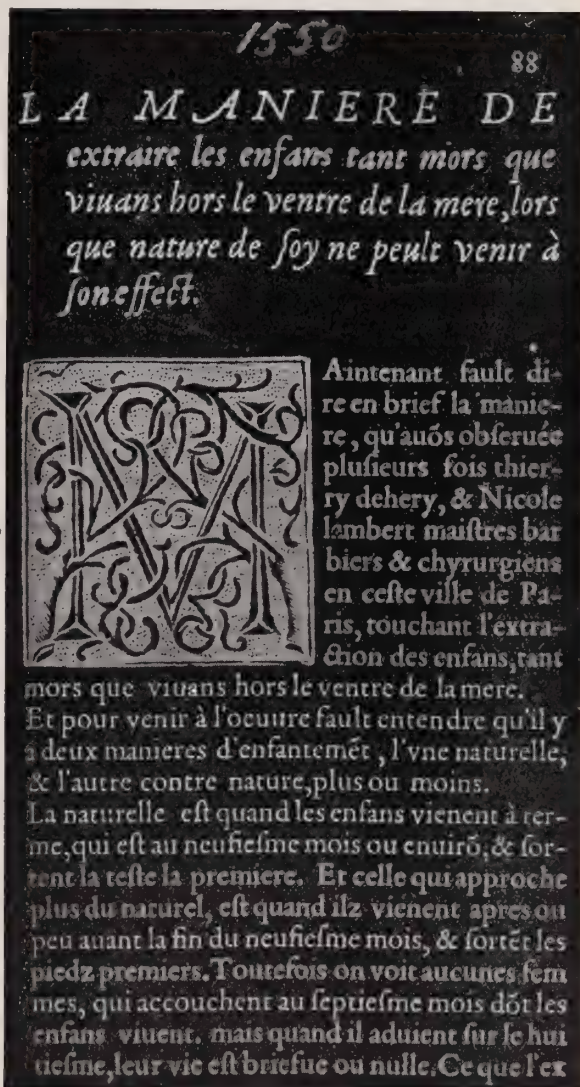 1550
88
LA MANIERE DE
extraire les enfans tant mors que
viuans hors le ventre de la mere, lors
que nature de ſoy ne peult venir à
ſon effect.
MAintenant fault di-
re en brief la manie-
re, qu'auõs obſeruée
pluſieurs fois thier-
ry dehery, & Nicole
lambert maiſtres bar
biers & chyrurgiens
en ceſte ville de Pa-
ris, touchant l'extra-
ction des enfans, tant
mors que viuans hors le ventre de la mere.
Et pour venir à l'oeuure fault entendre qu'il y
à deux manieres d'enfantemẽt, l'vne naturelle,
& l'autre contre nature, plus ou moins.
La naturelle eſt quand les enfans vienent à ter-
me, qui eſt au neufieſme mois ou enuirõ, & ſor-
tent la teſte la premiere. Et celle qui approche
plus du naturel, eſt quand ilz vienent apres ou
peu auant la fin du neufieſme mois, & ſortẽt les
piedz premiers. Toutefois on voit aucunes fem
mes, qui accouchent au ſeptieſme mois dõt les
enfans viuent. mais quand il aduient ſur le hui
tieſme, leur vie eſt briefue ou nulle. Ce que l'ex